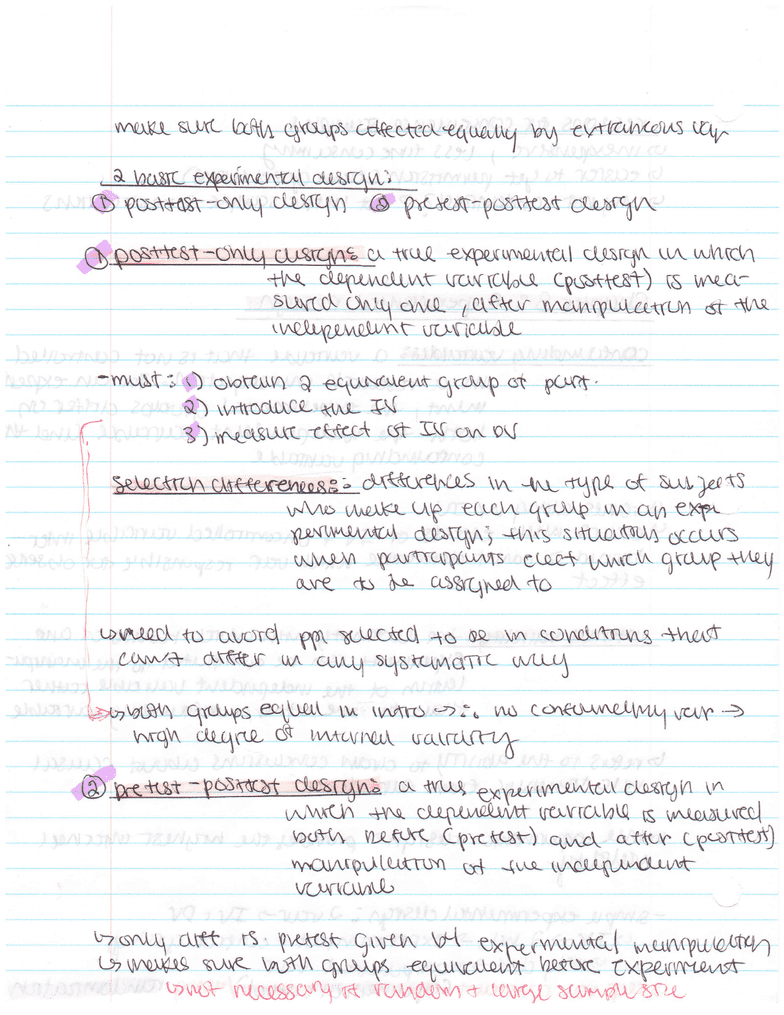 make sure both groups affected equally by extraneous var
2 basic experimental design:
① posttest-only design ② pretest-posttest design
① posttest-only design: a true experimental design in which
the dependent variable (posttest) is mea-
sured only one, after manipulation of the
independent variable
-must: 1) obtain 2 equivalent group of part.
2) introduce the IV
3) measure effect of IV on DV
selection differences: differences in the type of subjects
who make up each group in an expe
perimental design; this situation occurs
when participants elect which group they
are to be assigned to
↳ need to avoid ppl selected to be in conditions that
can't differ in any systematic way
↳ both groups equal in intro → ∴ no confounding var →
high degree of internal validity
② pretest-posttest design: a true experimental design in
which the dependent variable is measured
both before (pretest) and after (posttest)
manipulation of the independent
variable
↳ only diff is pretest given b4 experimental manipulation
↳ makes sure both groups equivalent before experiment
↳ not necessary if random + large sample size